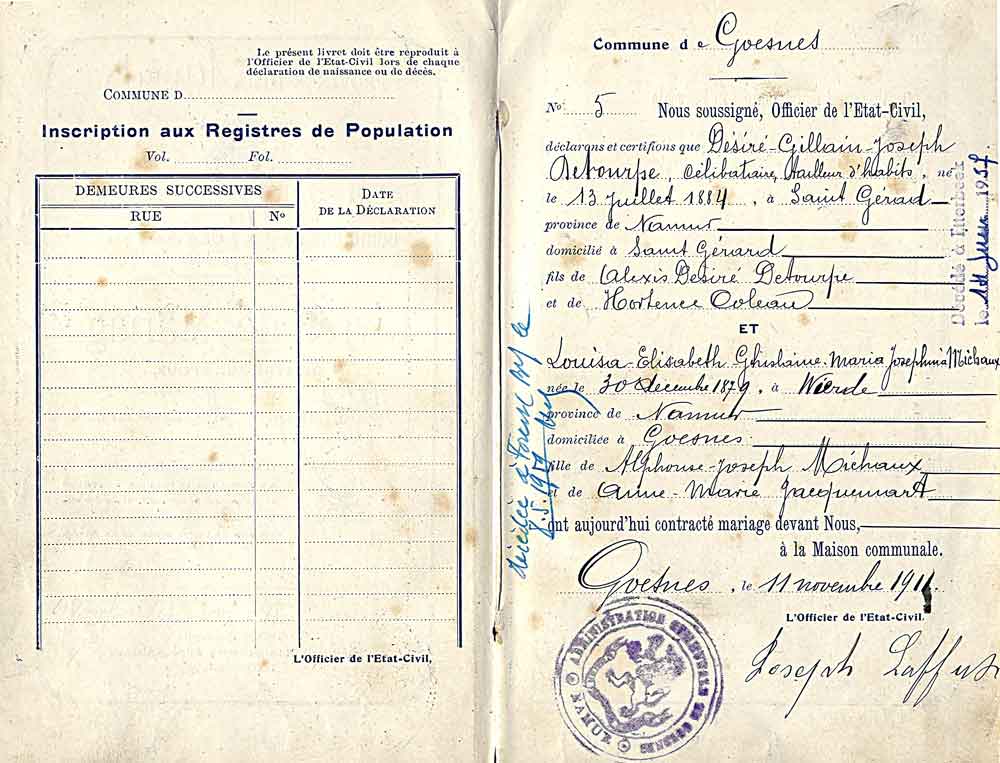 Le présent livret doit être reproduit à
l'Officier de l'Etat-Civil lors de chaque
déclaration de naissance ou de décès.
COMMUNE D
Inscription aux Registres de Population
Vol. Fol.
DEMEURES SUCCESSIVES
RUE
No
DATE
DE LA DÉCLARATION
L'Officier de l'Etat-Civil,
Commune de Goesnes
No 5 Nous soussigné, Officier de l'Etat-Civil,
déclarons et certifions que Désiré-Gillain-Joseph
Detourpe, célibataire, tailleur d'habits, né
le 13 juillet 1884, à Saint Gérard
province de Namur
domicilié à Saint Gérard
fils de Alexis Désiré Detourpe
et de Hortence Coleau
ET
Louisa-Elisabeth Ghislaine-Maria Josephina Michaux
née le 30 decembre 1879, à Wierde
province de Namur
domiciliée à Goesnes
fille de Alphonse-Joseph Michaux
et de Anne-Marie Jacquemart
ont aujourd'hui contracté mariage devant Nous,
à la Maison communale.
Goesnes, le 11 novembre 1911.
L'Officier de l'Etat-Civil.
Joseph
ADMINISTRATION COMMUNALE DE GOESNES
NAMUR
Décédé à Etterbeek
le 1957.
décédée à Forest le
8.5.19